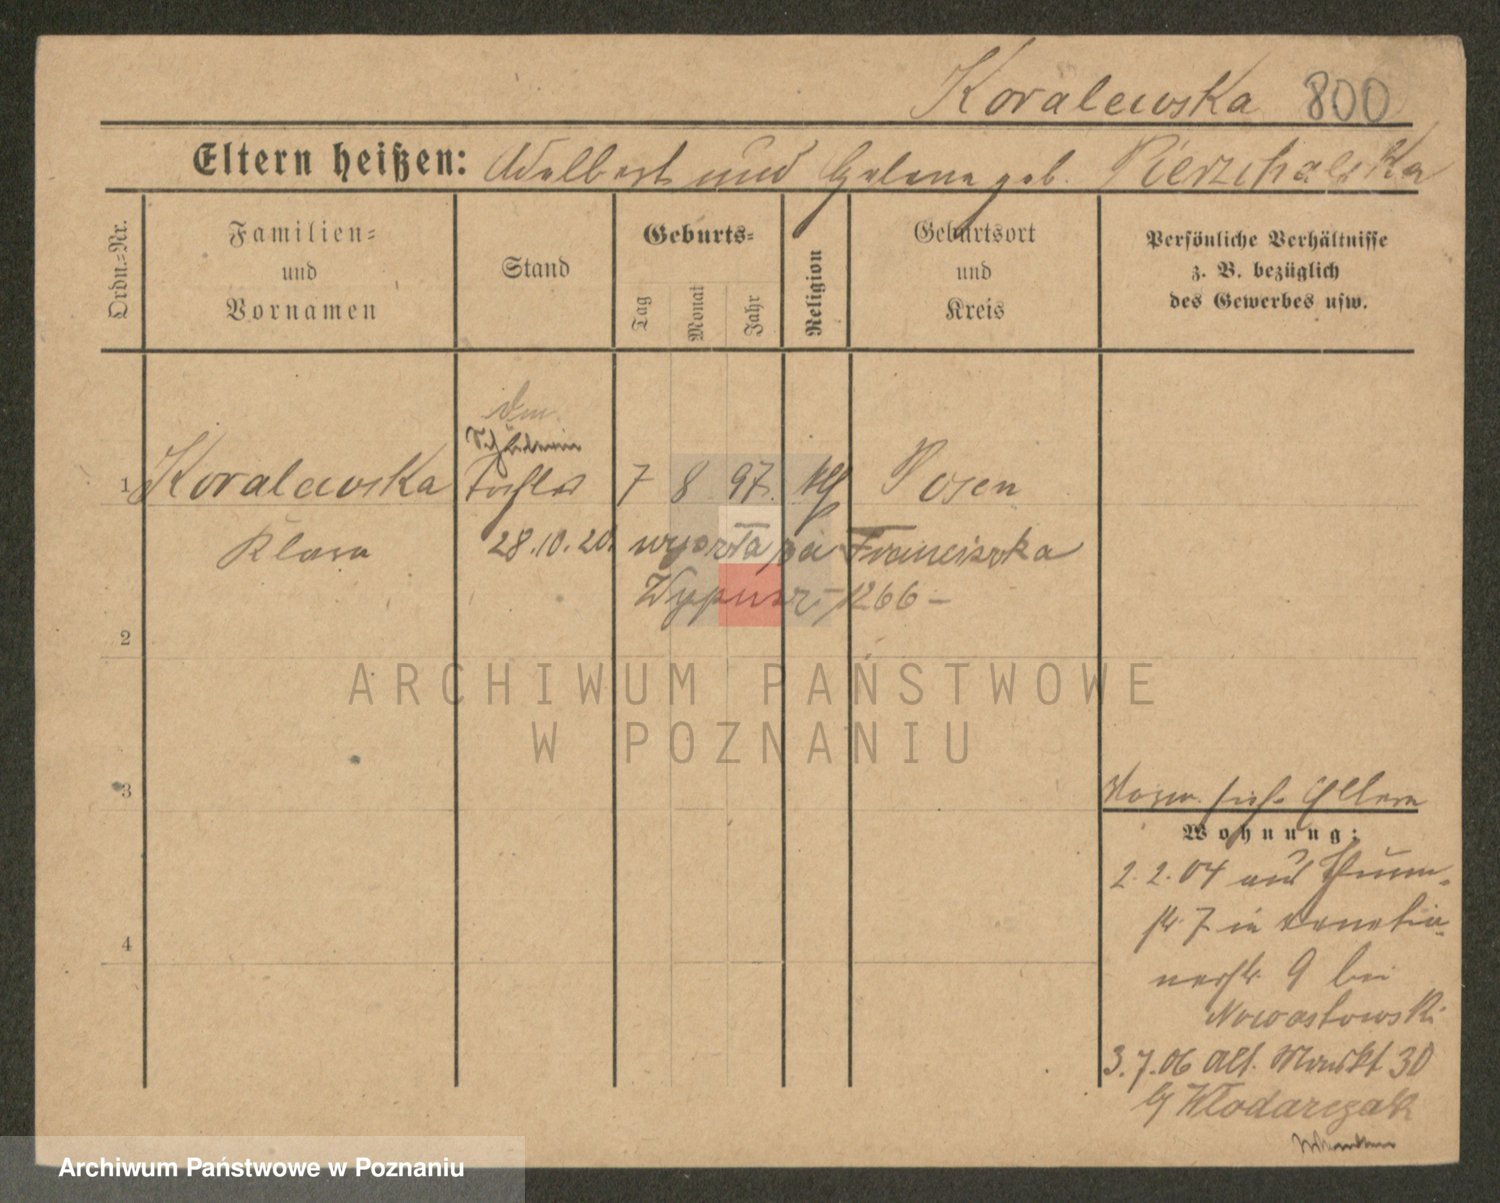 Koralewska 800
Eltern heißen: Adalbert und Helene geb. Pierzchalska
Ordn.-Nr.
Familien-
und
Vornamen
Stand
Geburts-
Tag
Monat
Jahr
Religion
Geburtsort
und
Kreis
Persönliche Verhältnisse
z. B. bezüglich
des Gewerbes usw.
Schülerin
1 Koralewska Tochter 7 8 97. kth Posen
Klara 28.10.20. wyszła za Franciszka
Wypusz-1266-
2
3
4
ARCHIWUM PAŃSTWOWE
W POZNANIU
siehe Eltern
Wohnung:
2.2.04 aus Thurm-
str. 7 in Venetia-
nerstr. 9 bei
Nowastowski
3.7.06 Alt. Markt 30
b/ Włodarczak
Archiwum Państwowe w Poznaniu